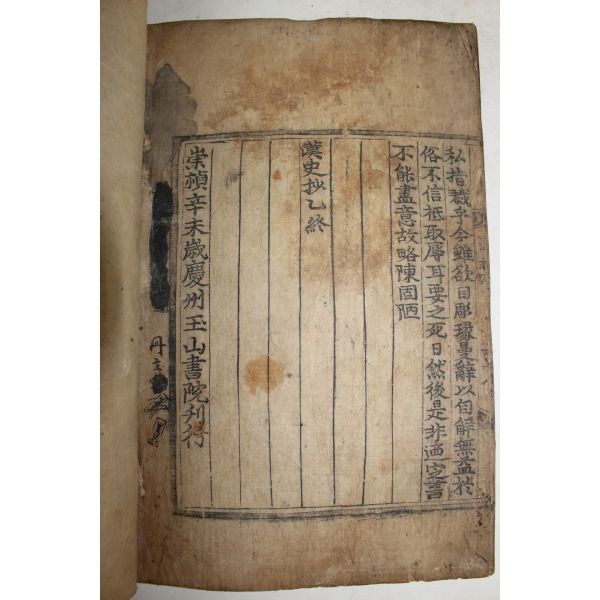 私指哉乎今雖欲自彫琢曼辭以自解無益於
俗不信秪取辱耳要之死日然後是非迺定書
不能盡意故略陳固陋
漢史抄乙終
崇禎辛未歲慶州玉山書院刊行
冊主